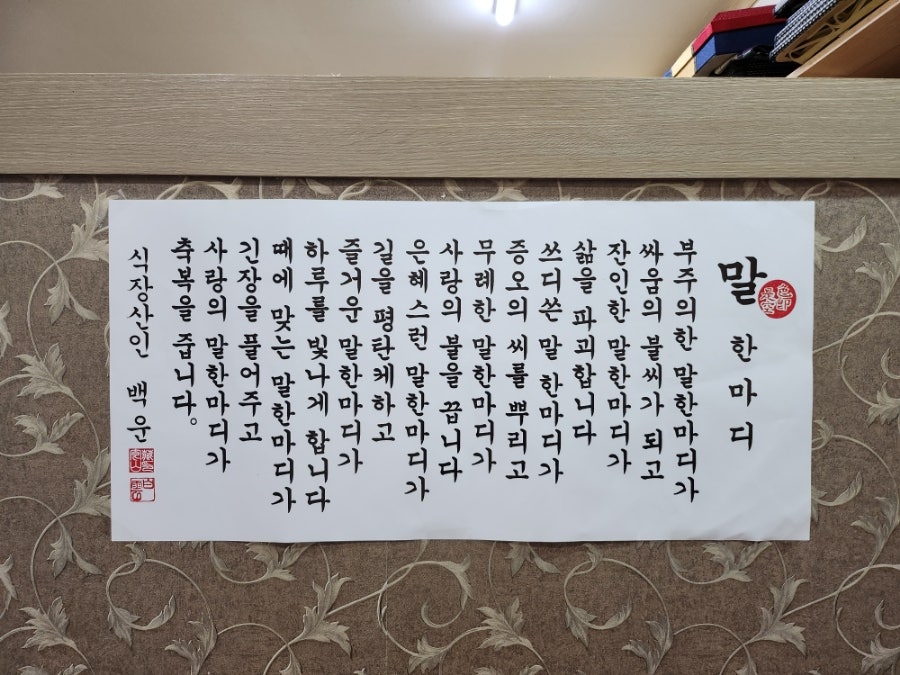 말 한마디
부주의한 말한마디가
싸움의 불씨가 되고
잔인한 말한마디가
삶을 파괴합니다
쓰디쓴 말 한마디가
증오의 씨를 뿌리고
무례한 말한마디가
사랑의 불을 끕니다
은혜스런 말한마디가
길을 평탄케하고
즐거운 말한마디가
하루를 빛나게 합니다
때에 맞는 말한마디가
긴장을 풀어주고
사랑의 말한마디가
축복을 줍니다。
식장산인 백운